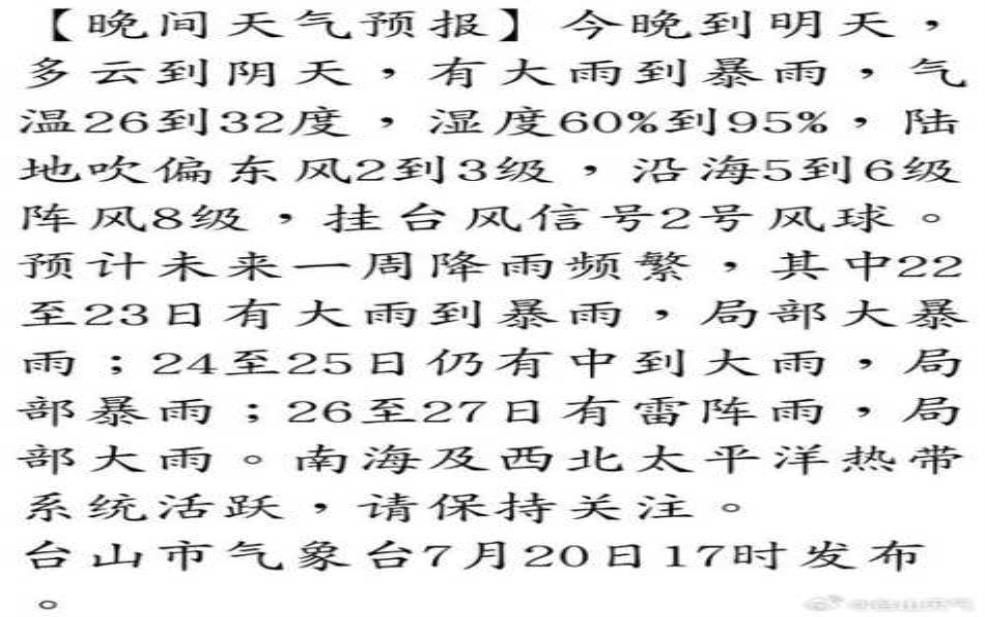 【晚间天气预报】今晚到明天，
多云到阴天，有大雨到暴雨，气
温26到32度，湿度60%到95%，陆
地吹偏东风2到3级，沿海5到6级
阵风8级，挂台风信号2号风球。
预计未来一周降雨频繁，其中22
至23日有大雨到暴雨，局部大暴
雨；24至25日仍有中到大雨，局
部暴雨；26至27日有雷阵雨，局
部大雨。南海及西北太平洋热带
系统活跃，请保持关注。
台山市气象台7月20日17时发布
。